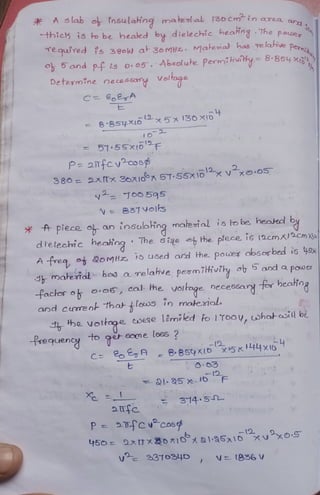 * A slab of insulating material 130cm² in area and
thick is to be heated by dielectric heating. The power
required is 380W at 30MHz. Material has relative
of 5 and pf is 0.05. Absolute Permittivity = 8.854 x
Determine necessary voltage
C = ε₀εrA / t
= 8.854x10^-12 x 5 x 130x10^-4 / 10^-2
= 57.55x10^-12 F
P = 2πfcv²cosϕ
380 = 2xπx 30x10⁶x 57.55x10^-12 x v²x0.05
v² = 700595
V = 837 volts
* A piece of an insulating material is to be heated by
dielectric heating. The size of the piece is 12cmx12cmx
A freq. of 20MHz is used and the power absorbed is
If material has a relative permittivity of 5 and a power
factor of 0.05, cal. the voltage necessary for heating
and current that flows in material.
If the voltage were limited to 1700V, what will be
frequency to get same loss ?
C = ε₀εrA / t = 8.854x10^-12 x5x144x10^-4 / 0.03
= 21.25 x 10^-12 F
Xc = 1 / 2πfc = 374.5Ω
P = 2πfcv²cosϕ
450 = 2xπx20x10⁶x21.25x10^-12 x v²x0.5
v² = 3370340 , V = 1836 V